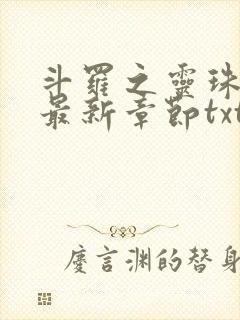 斗羅之靈珠
最新章節txt
慶言渊的替身